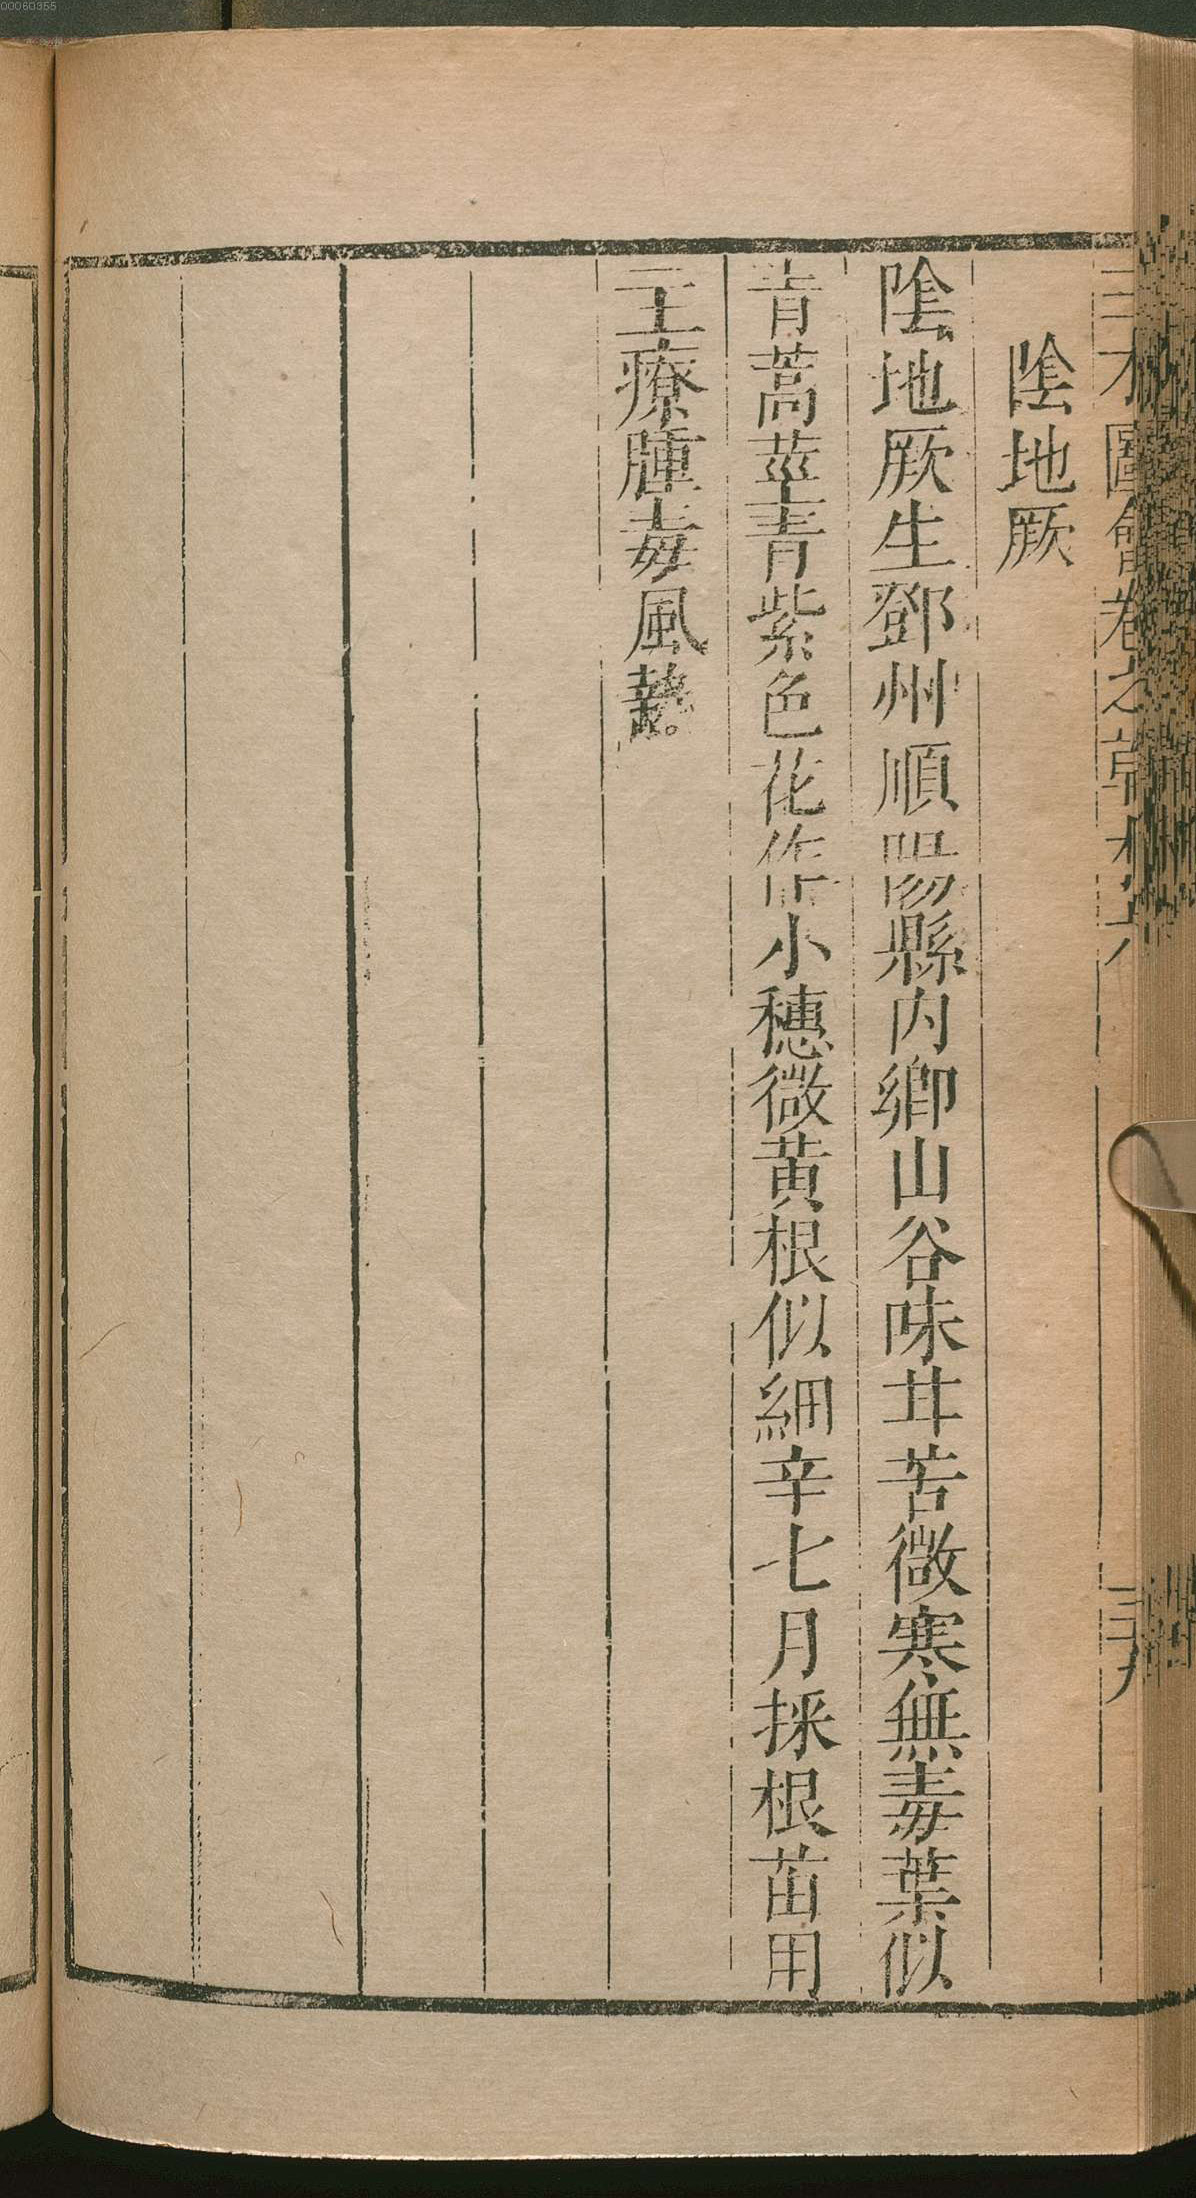 00060355
三才圖會卷之草木六
三九
陰地厥
陰地厥生鄧州順陽縣内鄉山谷味甘苦微寒無毒葉似
青蒿莖青紫色花作小穗微黃根似細辛七月採根苗用
主療腫毒風熱